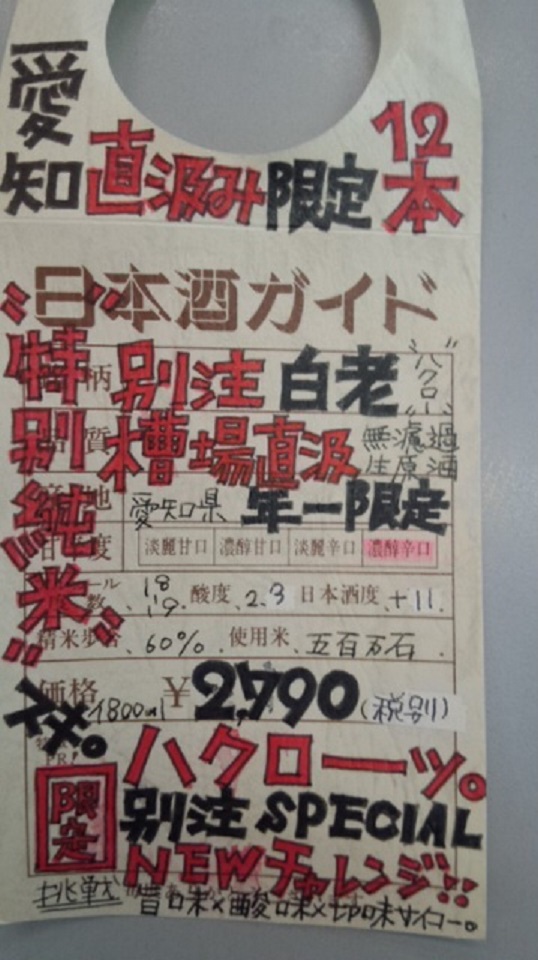 愛知 直汲み限定 12本
日本酒ガイド
特別純米
銘柄 別注 白老 "ハクロー"
品質 槽場直汲 無濾過生原酒
産地 愛知県 年一限定
甘辛度 淡麗甘口 濃醇甘口 淡麗辛口 濃醇辛口
アルコール度数 18~19 酸度 2.3 日本酒度 +11
精米歩合 60% 使用米 五百万石
価格 1800ml ¥2,790(税別)
スキ。
ハクローッ。
限定 別注 SPECIAL
NEWチャレンジ!!
挑戦 旨口味×酸口味×切味サイコー。